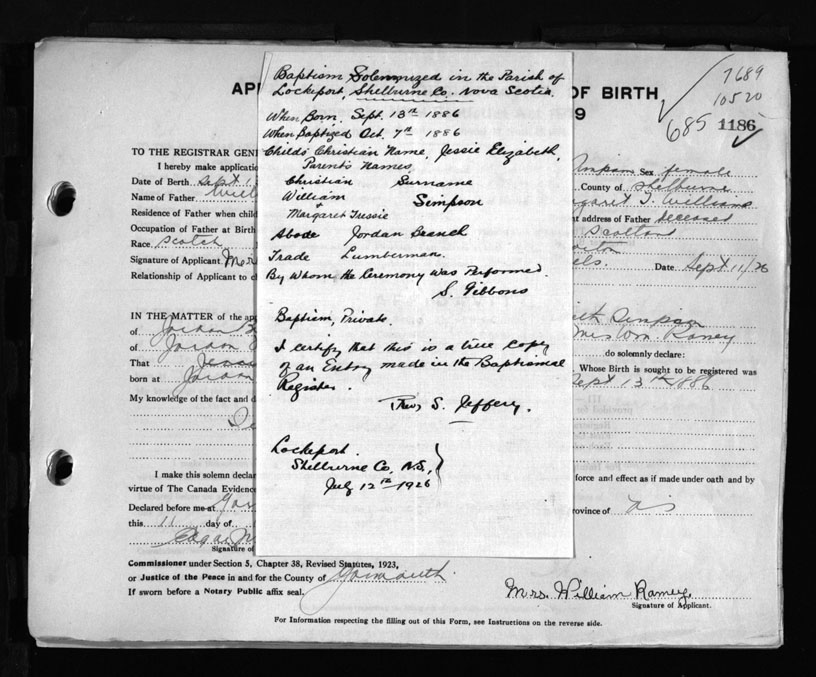 7689
10520
685 1186
AP OF BIRTH
9
TO THE REGISTRAR GEN
I hereby make applicati Sex female
Date of Birth Sept 1 County of Shelburne
Name of Father Will Margaret T. Williams
Residence of Father when child address of Father deceased
Occupation of Father at Birth Scotland
Race. Scotch
Signature of Applicant. Mrs Date Sept 11/26
Relationship of Applicant to c
IN THE MATTER of the app
of Jordan B
of Jordan Mrs Wm Ramey
That Jessie do solemnly declare:
Whose Birth is sought to be registered was
born at Jordan Sept 13th 1886
My knowledge of the fact and d
I make this solemn declar force and effect as if made under oath and by
virtue of The Canada Evidence
Declared before me at Yar province of NS
this 11 day of
Edgar
Signature of
Commissioner under Section 5, Chapter 38, Revised Statutes, 1923,
or Justice of the Peace in and for the County of Yarmouth
If sworn before a Notary Public affix seal.
Mrs. William Ramey.
Signature of Applicant.
For Information respecting the filling out of this Form, see Instructions on the reverse side.
Baptism, Solemnized in the Parish of
Lockeport, Shelburne Co. Nova Scotia.
When Born. Sept. 13th 1886
When Baptized Oct. 7th 1886
Childs Christian Name, Jessie Elizabeth,
Parents Names,
Christian Surname
William Simpson
+
Margaret Tressie
Abode Jordan Branch
Trade Lumberman.
By Whom the Ceremony was Performed.
S. Gibbons
Baptism, Private.
I certify that this is a true copy
of an Entry made in the Baptismal
Register.
S. Jeffery.
Lockeport.
Shelburne Co, N.S,
July 12th 1926